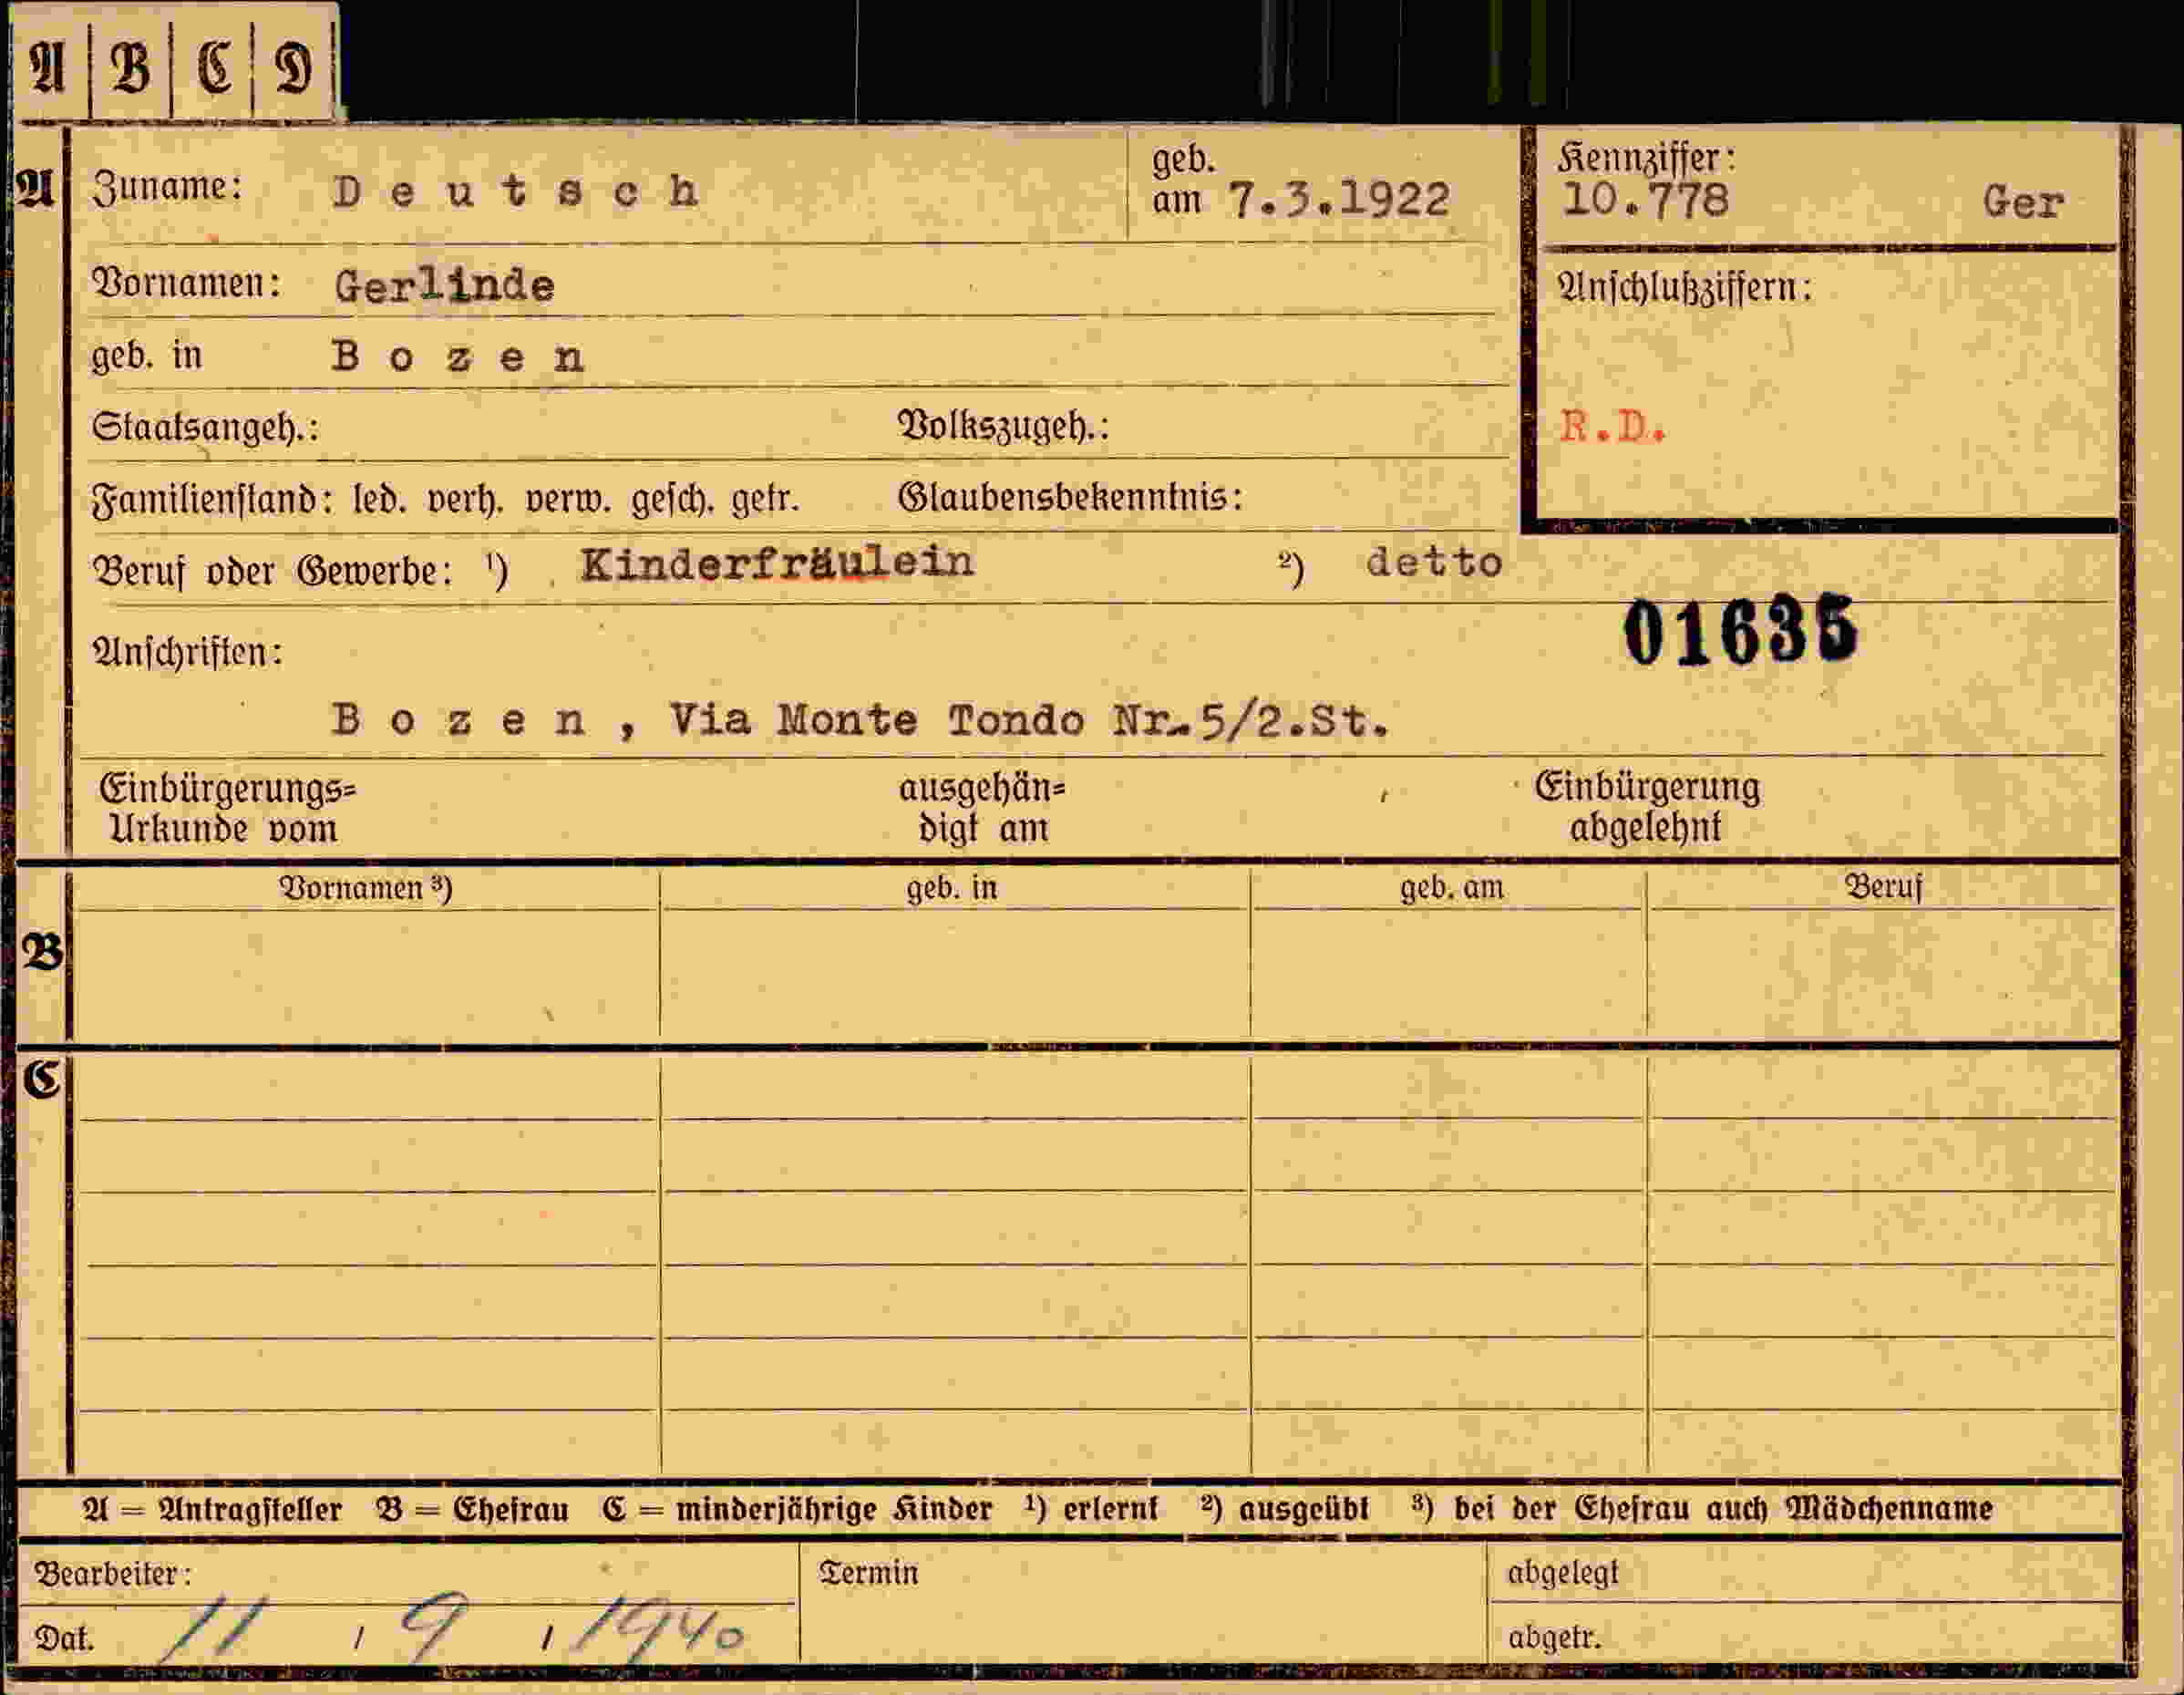 A B C D
A Zuname: Deutsch geb. am 7.3.1922 Kennziffer: 10.778 Ger
Vornamen: Gerlinde Anschlußziffern:
geb. in Bozen
Staatsangeh.: Volkszugeh.: R.D.
Familienstand: led. verh. verw. gesch. getr. Glaubensbekenntnis:
Beruf oder Gewerbe: ¹) Kinderfräulein ²) detto
01635
Anschriften:
Bozen, Via Monte Tondo Nr.5/2.St.
Einbürgerungs= ausgehän= Einbürgerung
Urkunde vom digt am abgelehnt
Vornamen ³) geb. in geb. am Beruf
B
C
A = Antragsteller B = Ehefrau C = minderjährige Kinder ¹) erlernt ²) ausgeübt ³) bei der Ehefrau auch Mädchenname
Bearbeiter: Termin abgelegt
Dat. 11 / 9 / 1940 abgetr.